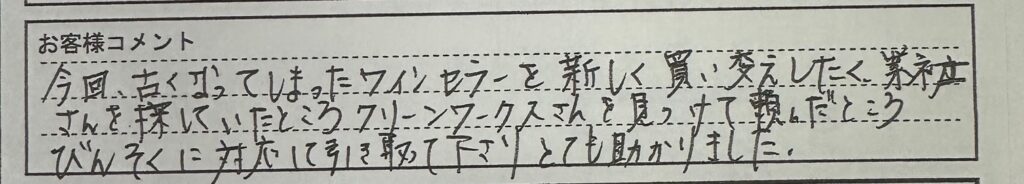 お客様コメント
今回、古くなってしまったワインセラーを新しく買い変えしたく、業社
さんを探していたところクリーンワークスさんを見つけて頼んだところ
びんそくに対応して引き取って下さりとても助かりました。